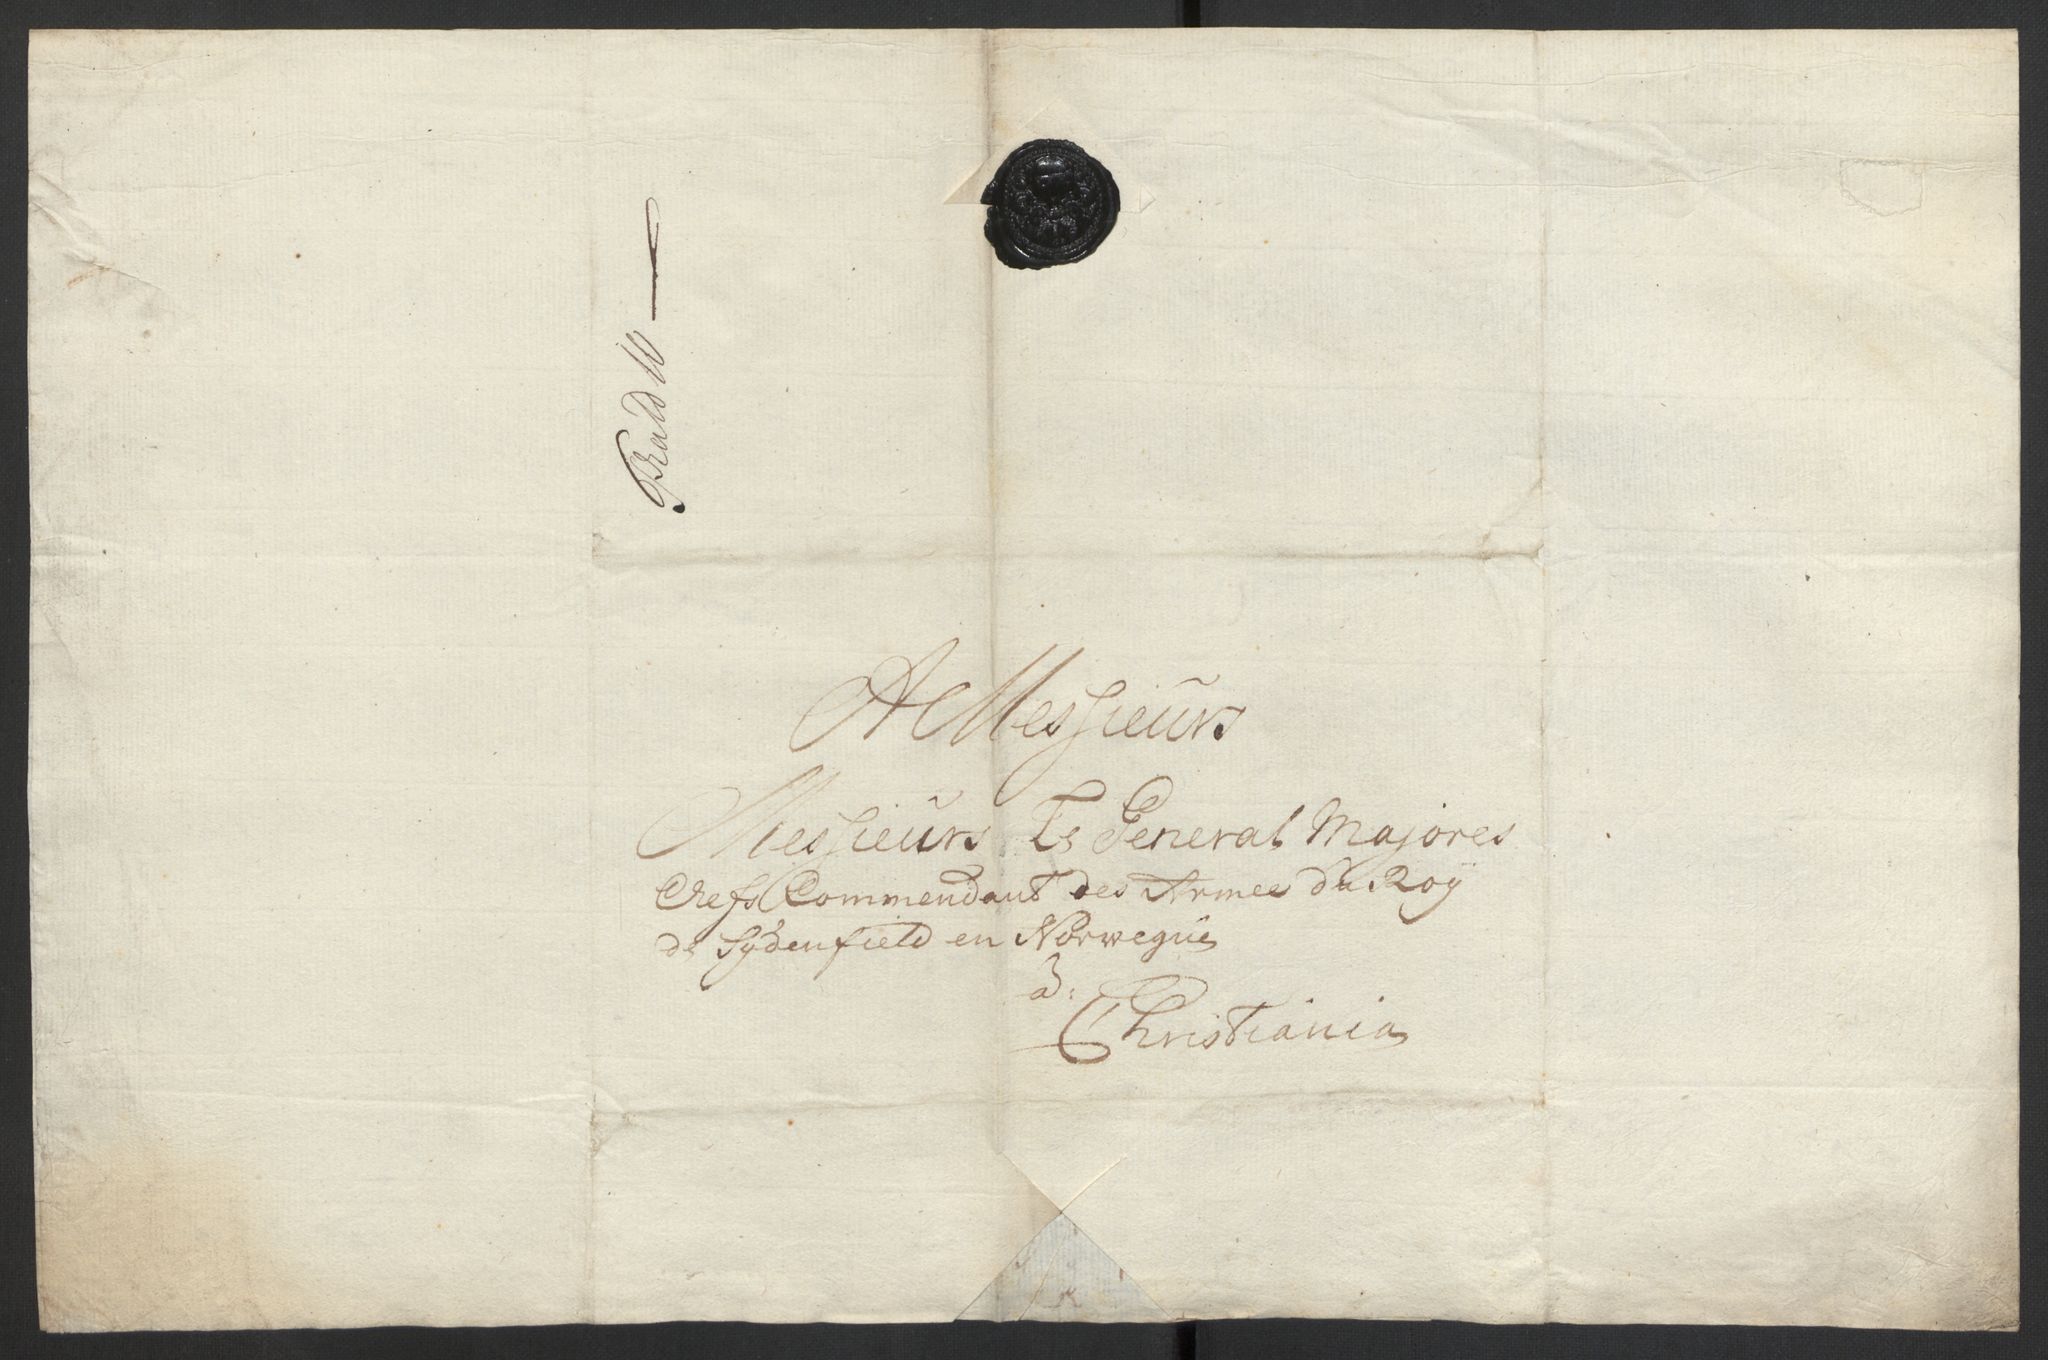 A Messieurs
Messieurs Le General Majores
Chefs Commendant des Armee du Roÿ
de Sÿdenfield en Norwegue
a:
Christiania